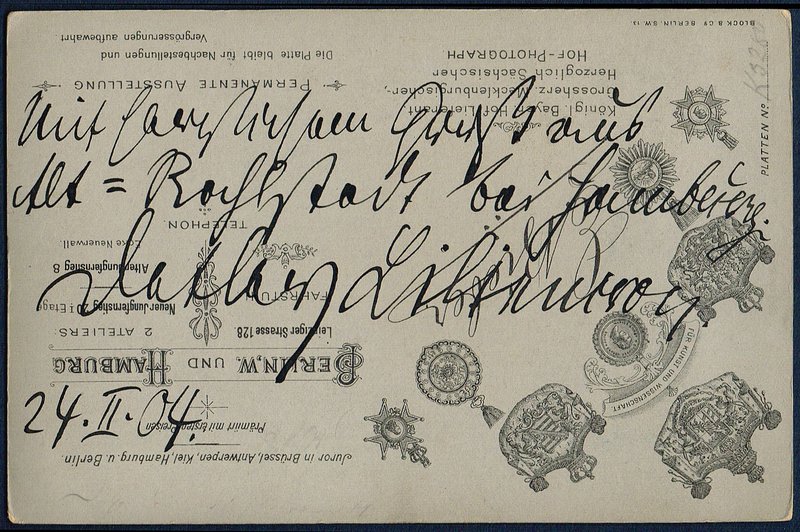 Mit herzlichem Gruß aus
Alt = Rahlstedt bei Hamburg.
Detlev Liliencron.
24. II. 04.
Juror in Brüssel, Antwerpen, Kiel, Hamburg u. Berlin.
Prämirt mit ersten Preisen
BERLIN, W. UND HAMBURG
Leipziger Strasse 128.
2 ATELIERS.
Neuer Jungfernstieg 20 I Etage
FAHRSTUHL
Alter Jungfernstieg 8
Ecke Neuerwall.
TELEPHON.
FÜR KUNST UND WISSENSCHAFT.
Königl. Bayer. Hof-Lieferant
Grossherz. Mecklenburgischer,
Herzoglich Sächsischer
HOF-PHOTOGRAPH.
PERMANENTE AUSSTELLUNG
Die Platte bleibt für Nachbestellungen und
Vergrösserungen aufbewahrt
PLATTEN No
BLOCK & Co BERLIN, S.W. 13.